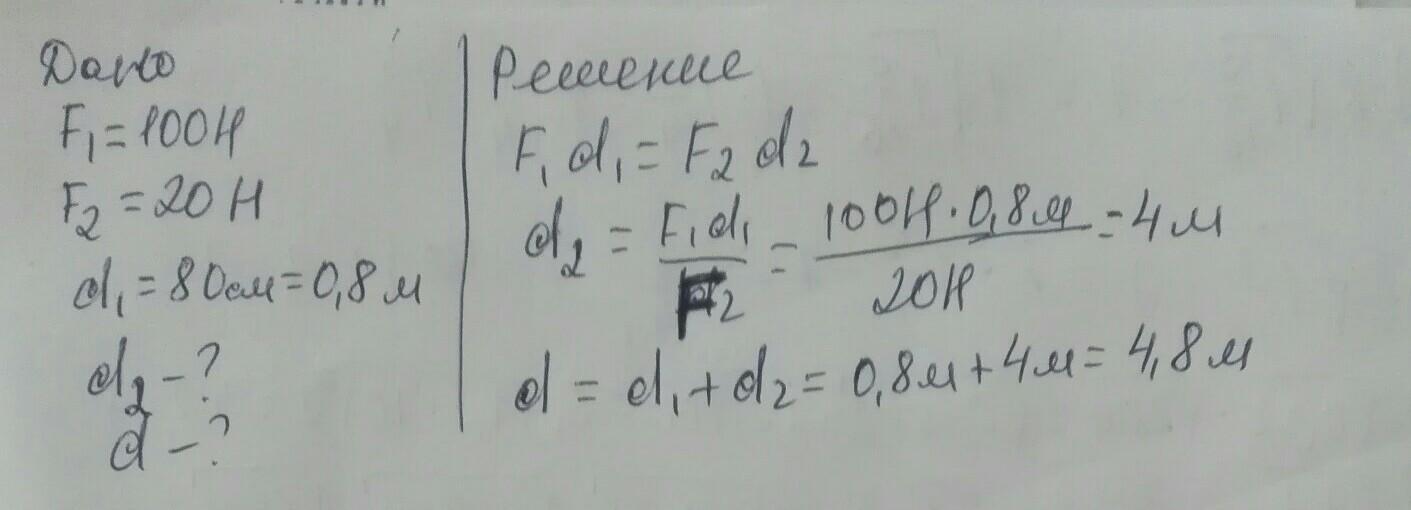 Дано
F₁ = 100Н
F₂ = 20 Н
d₁ = 80см = 0,8 м
d₂ - ?
d - ?
Решение
F₁ d₁ = F₂ d₂
d₂ = F₁d₁ / F₂ = 100Н · 0,8м / 20Н = 4 м
d = d₁ + d₂ = 0,8м + 4м = 4,8м